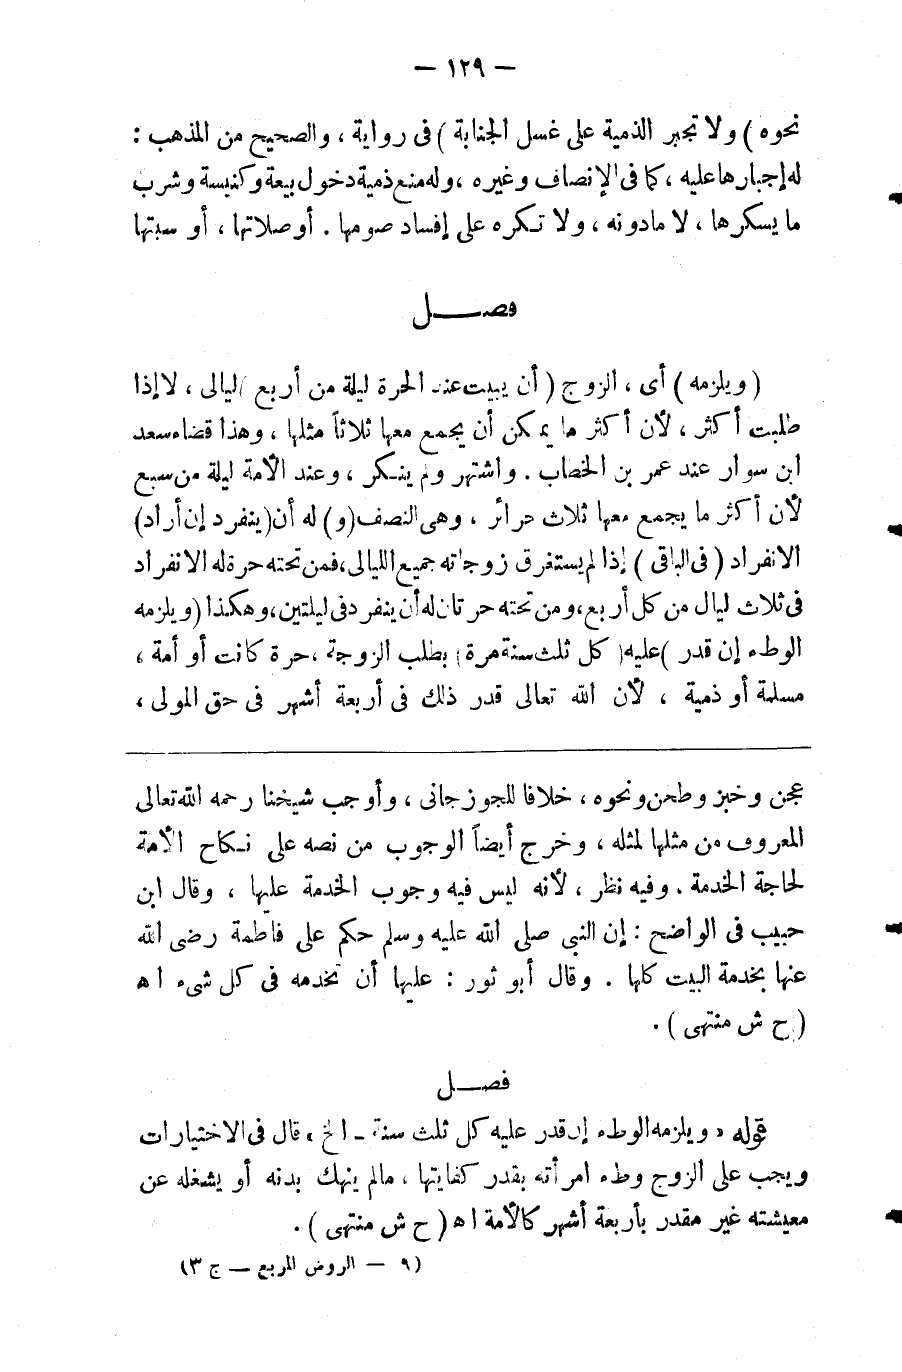 — ١٢٩ —
نحوه ) ولا تجبر الذمية على غسل الجنابة ) فى رواية ، والصحيح من المذهب :
له إجبارها عليه ، كما فى الإنصاف وغيره ، وله منع ذمية دخول بيعة وكنيسة وشرب
ما يسكرها ، لا مادونه ، ولا تكره على إفساد صومها . أو صلاتها ، أو سبتها
فصـــل
( ويلزمه ) أى ، الزوج ( أن يبيت عند الحرة ليلة من أربع ) ليالى ، لا إذا
طلبت أكثر ، لأن أكثر ما يمكن أن يجمع معها ثلاثاً مثلها ، وهذا قضاء سعد
ابن سوار عند عمر بن الخطاب . واشتهر ولم ينكر ، وعند الأمة ليلة من سبع
لأن أكثر ما يجمع معها ثلاث حرائر ، وهى النصف (و) له أن (ينفرد إن أراد)
الانفراد ( فى الباقى ) إذا لم يستغرق زوجاته جميع الليالى، فمن تحته حرة له الانفراد
فى ثلاث ليال من كل أربع، ومن تحته حرتان له أن ينفرد فى ليلتين، وهكذا (ويلزمه
الوطء إن قدر ) عليه ( كل ثلث سنة مرة ) بطلب الزوجة ، حرة كانت أو أمة ،
مسلمة أو ذمية ، لأن الله تعالى قدر ذلك فى أربعة أشهر فى حق المولى ،
عجن وخبز وطحن ونحوه ، خلافا للجوزجانى ، وأوجب شيخنا رحمه الله تعالى
المعروف من مثلها لمثله ، وخرج أيضاً الوجوب من نصه على نكاح الأمة
لحاجة الخدمة . وفيه نظر ، لأنه ليس فيه وجوب الخدمة عليها ، وقال ابن
حبيب فى الواضح : إن النبى صلى الله عليه وسلم حكم على فاطمة رضى الله
عنها بخدمة البيت كلها . وقال أبو ثور : عليها أن تخدمه فى كل شىء اه
( ح ش منتهى ) .
فصـــل
قوله « ويلزمه الوطء إن قدر عليه كل ثلث سنة ـ الخ » قال فى الاختيارات
ويجب على الزوج وطء امرأته بقدر كفايتها ، مالم ينهك بدنه أو يشغله عن
معيشته غير مقدر بأربعة أشهر كالأمة اه ( ح ش منتهى ) .
(٩ — الروض المربع — ج ٣)